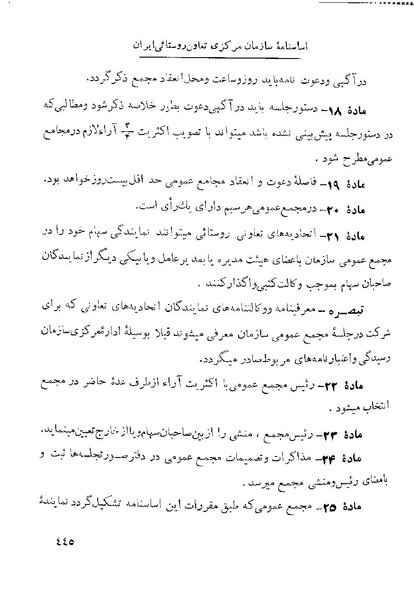 اساسنامهٔ سازمان مرکزی تعاون روستائی ایران
در آگهی و دعوت نامه باید روز و ساعت و محل انعقاد مجمع ذکر گردد.
مادهٔ ۱۸- دستور جلسه باید در آگهی دعوت بطور خلاصه ذکر شود و مطالبی که
در دستور جلسه پیش بینی نشده باشد میتواند با تصویب اکثریت آراء لازم در مجامع
عمومی مطرح شود .
مادهٔ ۱۹- فاصلهٔ دعوت و انعقاد مجامع عمومی حد اقل بیست روز خواهد بود.
مادهٔ ۲۰- در مجمع عمومی هر سهم دارای یک رأی است.
مادهٔ ۲۱- اتحادیه‌های تعاونی روستائی میتوانند نمایندگی سهام خود را در
مجمع عمومی سازمان باعضای هیئت مدیره یا بمدیر عامل و یا بیکی دیگر از نمایندگان
صاحبان سهام بموجب وکالت کتبی واگذار کنند .
تبصره- معرفینامه و وکالتنامه‌های نمایندگان اتحادیه‌های تعاونی که برای
شرکت در جلسهٔ مجمع عمومی سازمان معرفی میشوند قبلا بوسیلهٔ ادارهٔ مرکزی سازمان
رسیدگی و اعتبار نامه‌های مربوط صادر میگردد.
مادهٔ ۲۲- رئیس مجمع عمومی با اکثریت آراء از طرف عدهٔ حاضر در مجمع
انتخاب میشود .
مادهٔ ۲۳- رئیس مجمع ، منشی را از بین صاحبان سهام و یا از خارج تعیین مینماید.
مادهٔ ۲۴- مذاکرات و تصمیمات مجمع عمومی در دفتر صورتجلسه‌ها ثبت و
بامضای رئیس و منشی مجمع میرسد .
مادهٔ ۲۵- مجمع عمومی که طبق مقررات این اساسنامه تشکیل گردد نمایندهٔ
۴۴۵